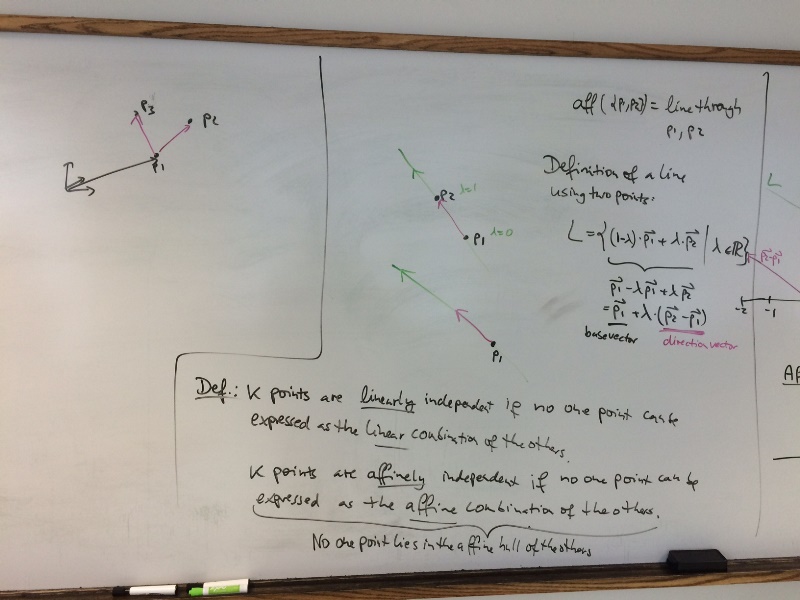 P3
P2
P1
P2 λ=1
P1 λ=0
P1
aff({P1,P2}) = line through
P1, P2
Definition of a line
using two points:
L = {(1-λ)·p⃗1 + λ·p⃗2 | λ∈ℝ}
p⃗1 - λp⃗1 + λp⃗2
= p⃗1 + λ·(p⃗2 - p⃗1)
base vector direction vector
L
p⃗2-p⃗1
-2 -1
Def.: K points are linearly independent if no one point can be
expressed as the linear combination of the others.
K points are affinely independent if no one point can be
expressed as the affine combination of the others.
No one point lies in the affine hull of the others